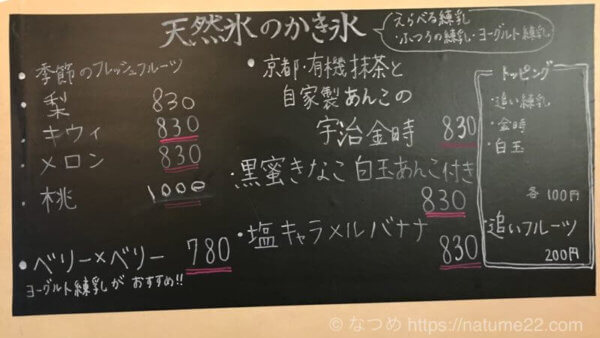 天然氷のかき氷
えらべる練乳
ふつうの練乳・ヨーグルト練乳
季節のフレッシュフルーツ
・梨 830
・キウィ 830
・メロン 830
・桃 1000
・ベリー×ベリー 780
ヨーグルト練乳が おすすめ!!
・京都・有機抹茶と
自家製あんこの
宇治金時 830
・黒蜜きなこ白玉あんこ付き
830
・塩キャラメルバナナ
830
トッピング
・追い練乳
・金時
・白玉
各100円
追いフルーツ
200円
© なつめ https://natume22.com